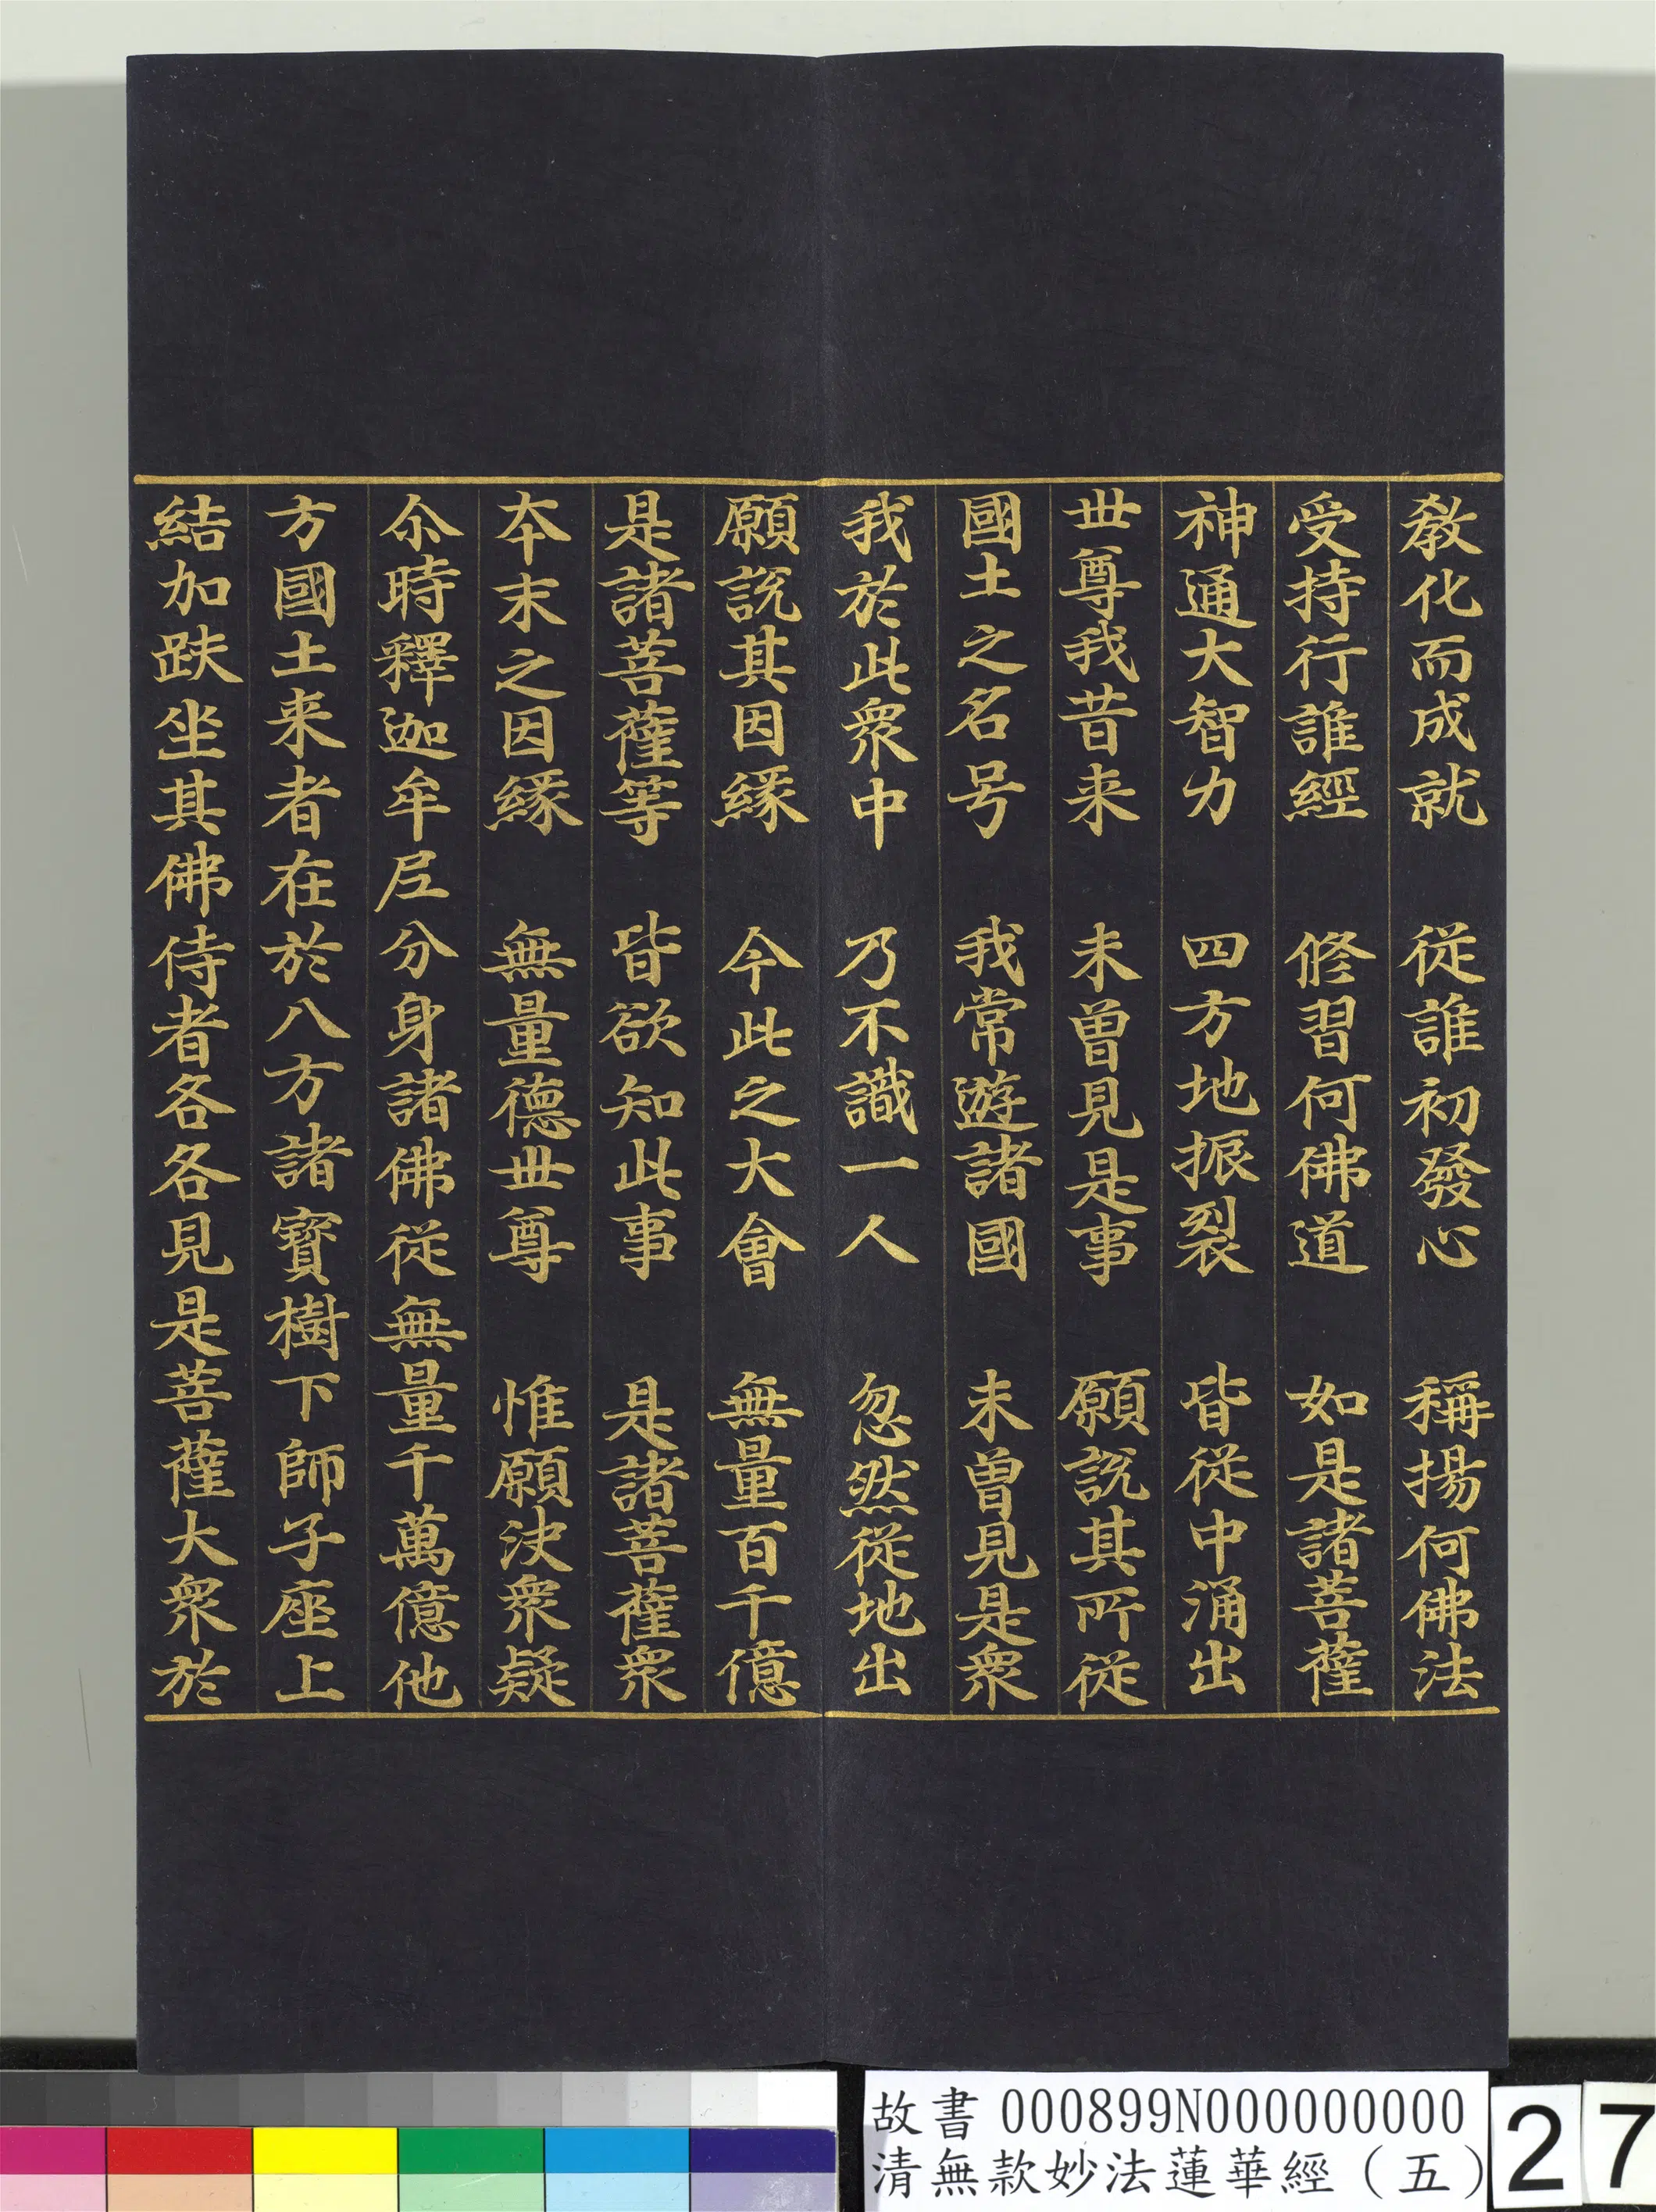 教化而成就　從誰初發心　稱揚何佛法
受持行誰經　修習何佛道　如是諸菩薩
神通大智力　四方地振裂　皆從中涌出
世尊我昔来　未曾見是事　願說其所從
國土之名号　我常遊諸國　未曾見是衆
我於此衆中　乃不識一人　忽然從地出
願說其因緣　今此之大會　無量百千億
是諸菩薩等　皆欲知此事　是諸菩薩衆
本末之因緣　無量德世尊　惟願決衆疑
尒時釋迦牟尼分身諸佛從無量千萬億他
方國土来者在於八方諸寶樹下師子座上
結加趺坐其佛侍者各各見是菩薩大衆於
故書 000899N000000000
清無款妙法蓮華經（五）
27